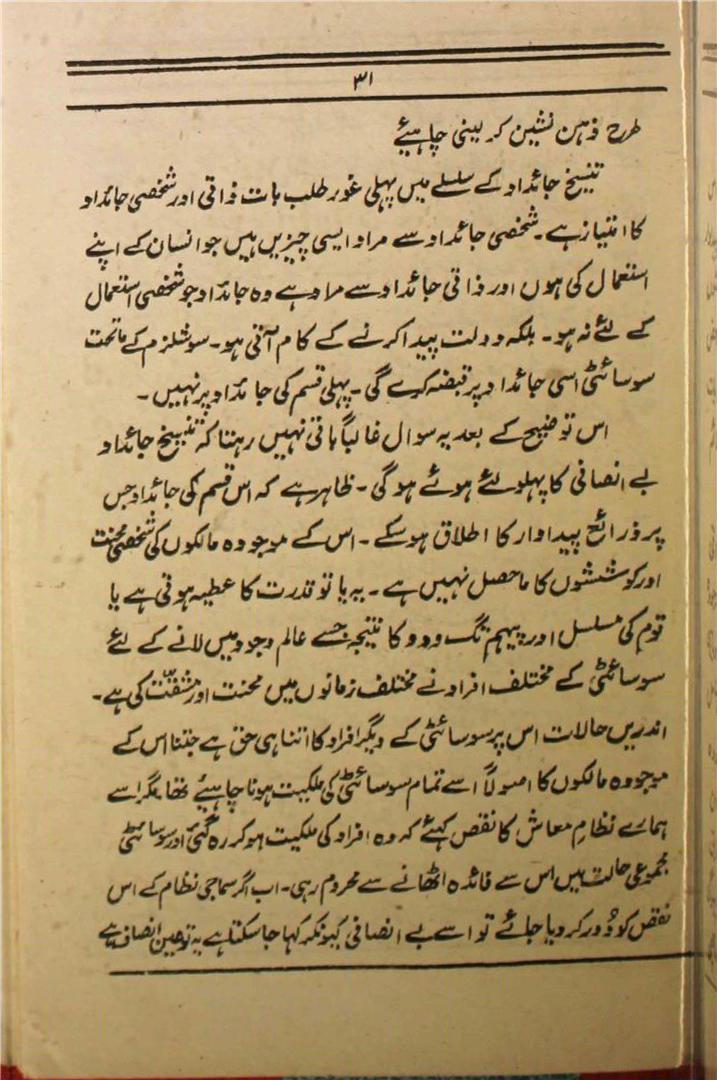 ۳۱
طرح ذہن نشین کر لینی چاہیئے
تنسیخ جائداد کے سلسلے میں پہلی غور طلب بات ذاتی اور شخصی جائداد
کا امتیاز ہے۔ شخصی جائداد سے مراد ایسی چیزیں ہیں جو انسان کے اپنے
استعمال کی ہوں اور ذاتی جائداد سے مراد ہے وہ جائداد جو شخصی استعمال
کے لئے نہ ہو۔ بلکہ دولت پیدا کرنے کے کام آتی ہو۔ سوشلزم کے ماتحت
سوسائٹی اسی جائداد پر قبضہ کرے گی۔ پہلی قسم کی جائداد پر نہیں۔
اس توضیح کے بعد یہ سوال غالباً باقی نہیں رہتا کہ تنسیخ جائداد
بے انصافی کا پہلو لئے ہوئے ہوگی۔ ظاہر ہے کہ اس قسم کی جائداد جس
پر ذرائع پیداوار کا اطلاق ہو سکے۔ اس کے موجودہ مالکوں کی شخصی محنت
اور کوششوں کا ماحصل نہیں ہے۔ یہ یا تو قدرت کا عطیہ ہوتی ہے یا
قوم کی مسلسل اور پیہم تگ ودو کا نتیجہ جسے عالم وجود میں لانے کے لئے
سوسائٹی کے مختلف افراد نے مختلف زمانوں میں محنت اور مشقّت کی ہے۔
اندریں حالات اس پر سوسائٹی کے دیگر افراد کا اتنا ہی حق ہے جتنا اس کے
موجودہ مالکوں کا اصولاً اسے تمام سوسائٹی کی ملکیت ہونا چاہیئے تھا مگر اسے
ہمارے نظامِ معاش کا نقص کہئے کہ وہ افراد کی ملکیت ہو کر رہ گئی اور سوسائٹی
مجموعی حالت میں اس سے فائدہ اٹھانے سے محروم رہی۔ اب اگر سماجی نظام کے اس
نقص کو دُور کر دیا جائے تو اسے بے انصافی کیونکر کہا جا سکتا ہے یہ تو عین انصاف ہے